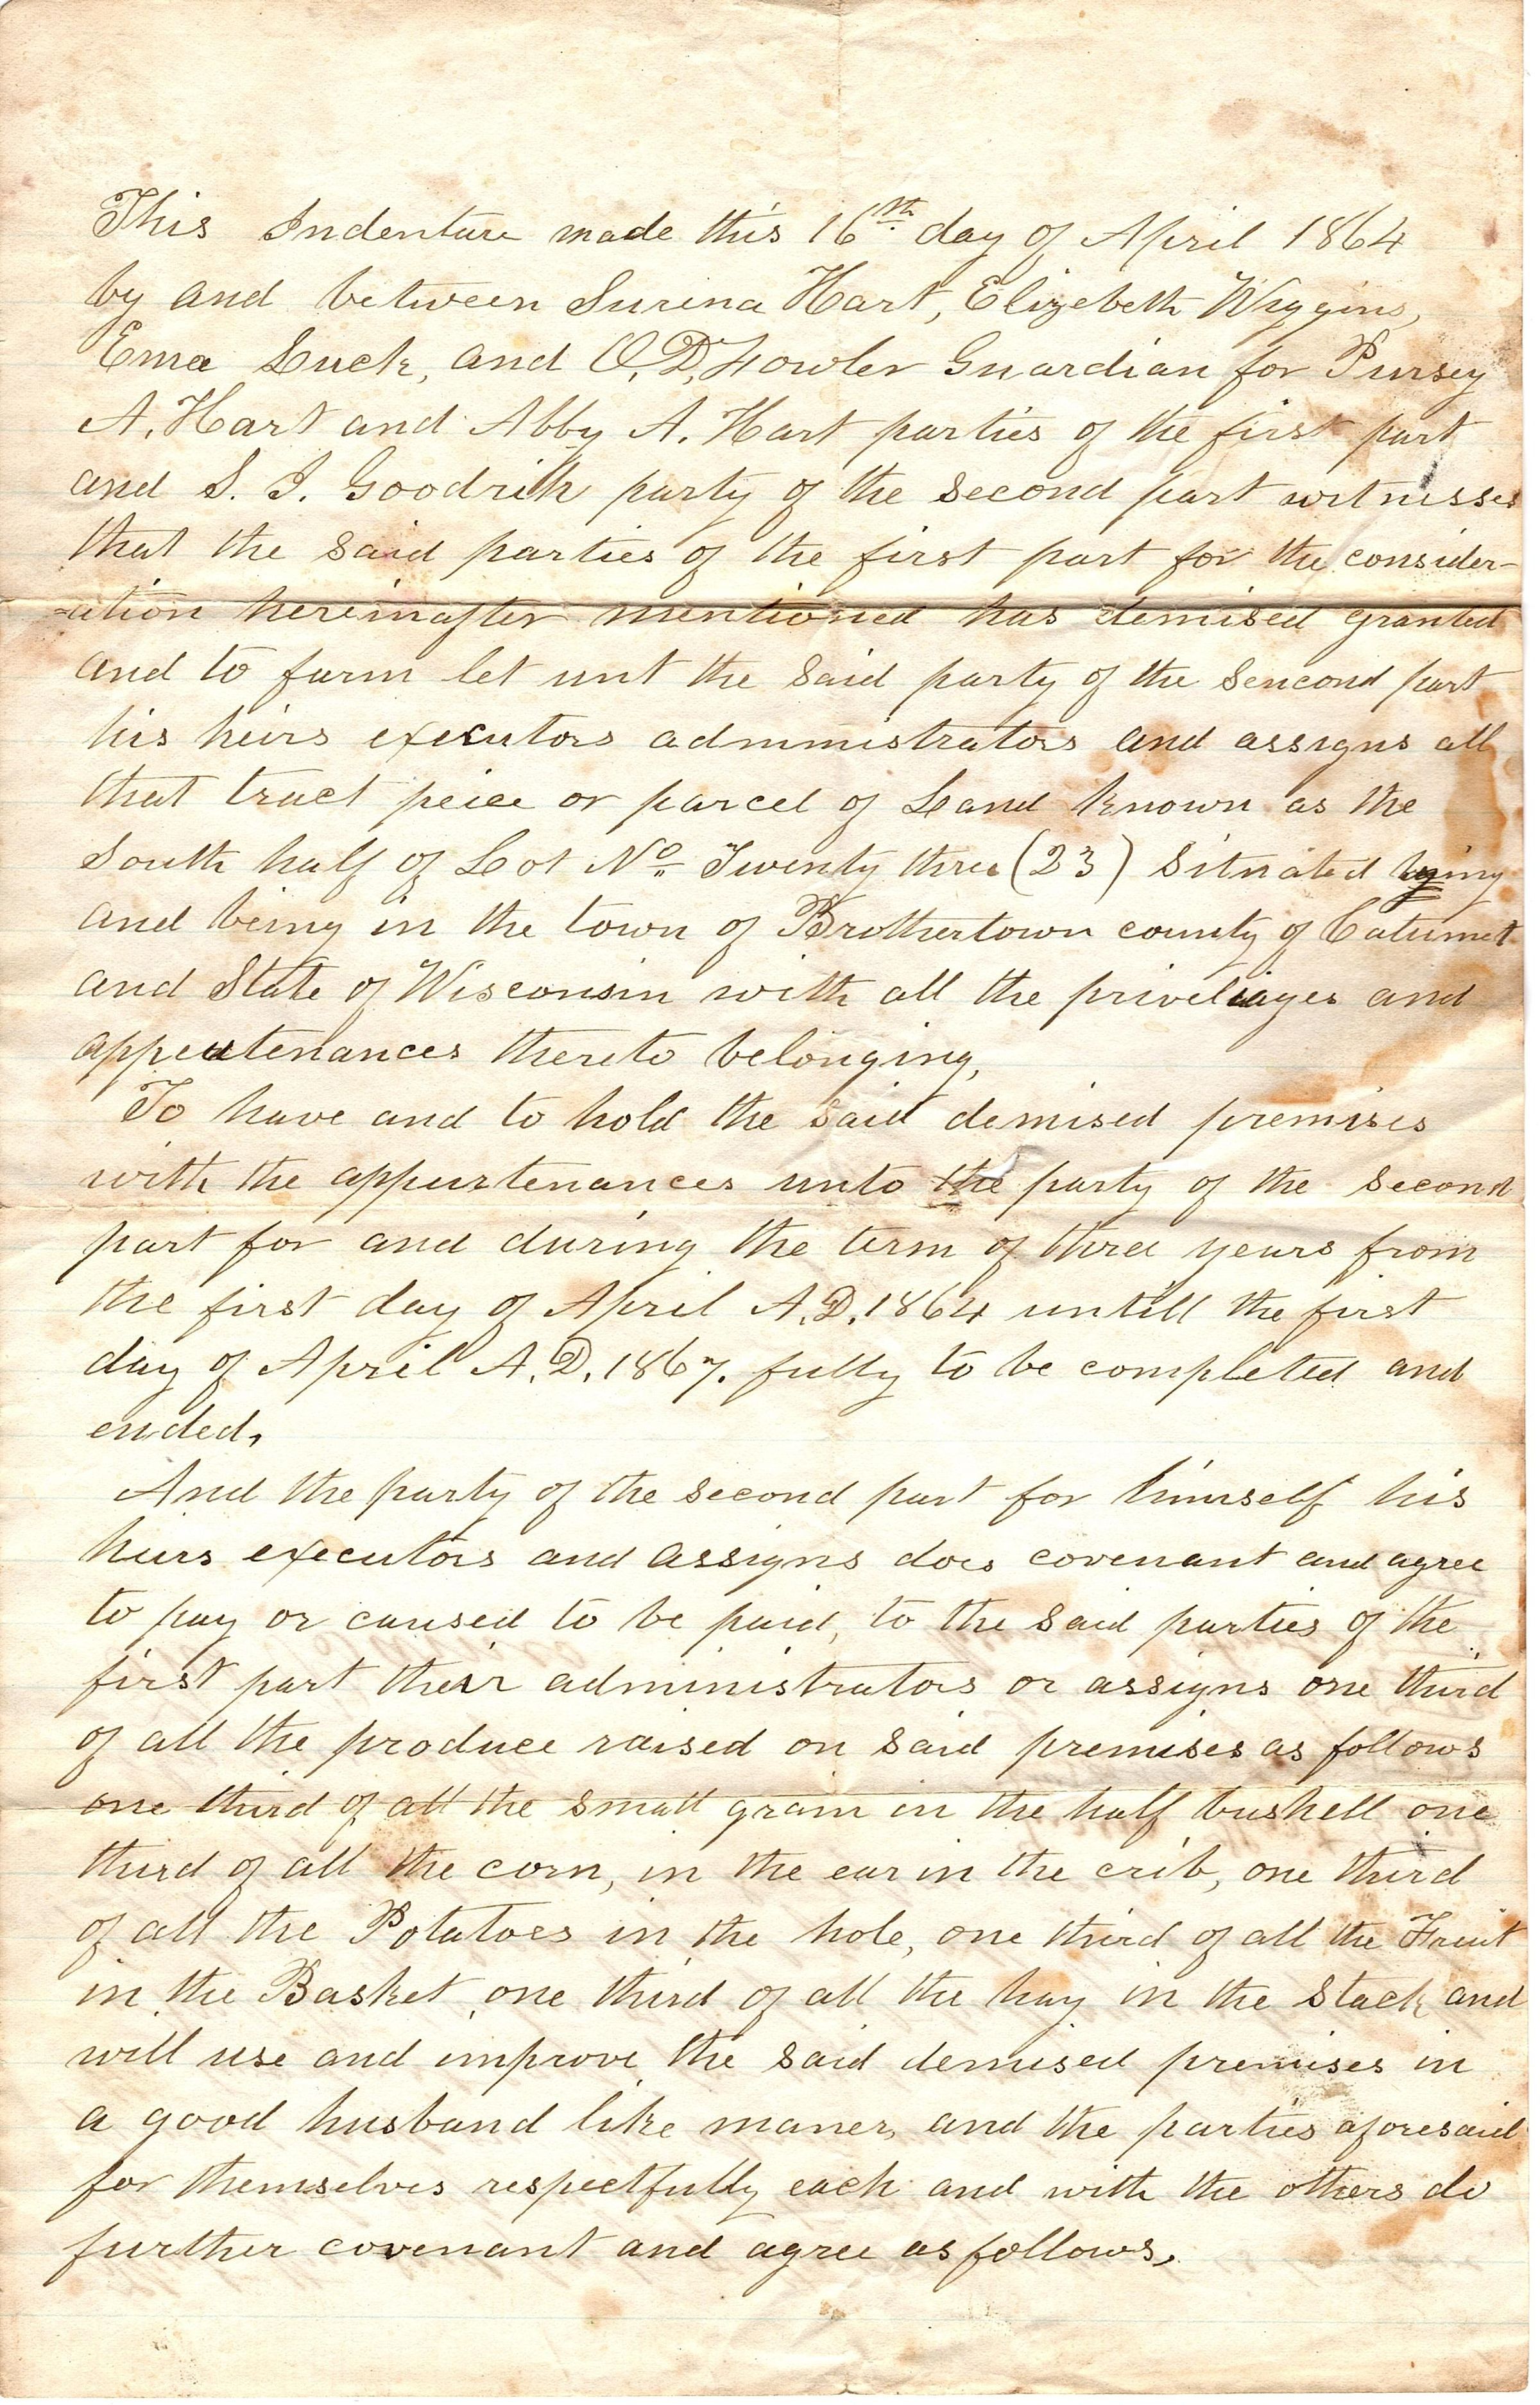 This Indenture made this 16th day of April 1864
by and between Surena Hart, Elizebeth Wiggins,
Ema Luck, and O. D. Fowler Guardian for Pursey
A. Hart and Abby A. Hart parties of the first part
and S. I. Goodrich party of the second part witnesses
that the said parties of the first part for the consider-
-ation hereinafter mentioned has demised granted
and to farm let unt the said party of the sencond part
his heirs executors administrators and assigns all
that tract peice or parcel of Land known as the
South half of Lot No. Twenty three (23) Situated lying
and being in the town of Brothertown county of Calumet
and State of Wisconsin with all the priveliages and
appeutenances thereto belonging,
To have and to hold the said demised premises
with the appurtenances unto the party of the second
part for and during the term of three years from
the first day of April A.D. 1864 untill the first
day of April A.D. 1867. fully to be completed and
ended,
And the party of the second part for himself his
heirs executors and assigns does covenant and agree
to pay or caused to be paid, to the said parties of the
first part their administrators or assigns one third
of all the produce raised on said premises as follows
one third of all the small grain in the half bushell one
third of all the corn, in the ear in the crib, one third
of all the Potatoes in the hole, one third of all the Fruit
in the Basket, one third of all the hay in the Stack and
will use and improve the said demised premises in
a good husband like maner, and the parties aforesaid
for themselves respectfully each and with the others do
further covenant and agree as follows,